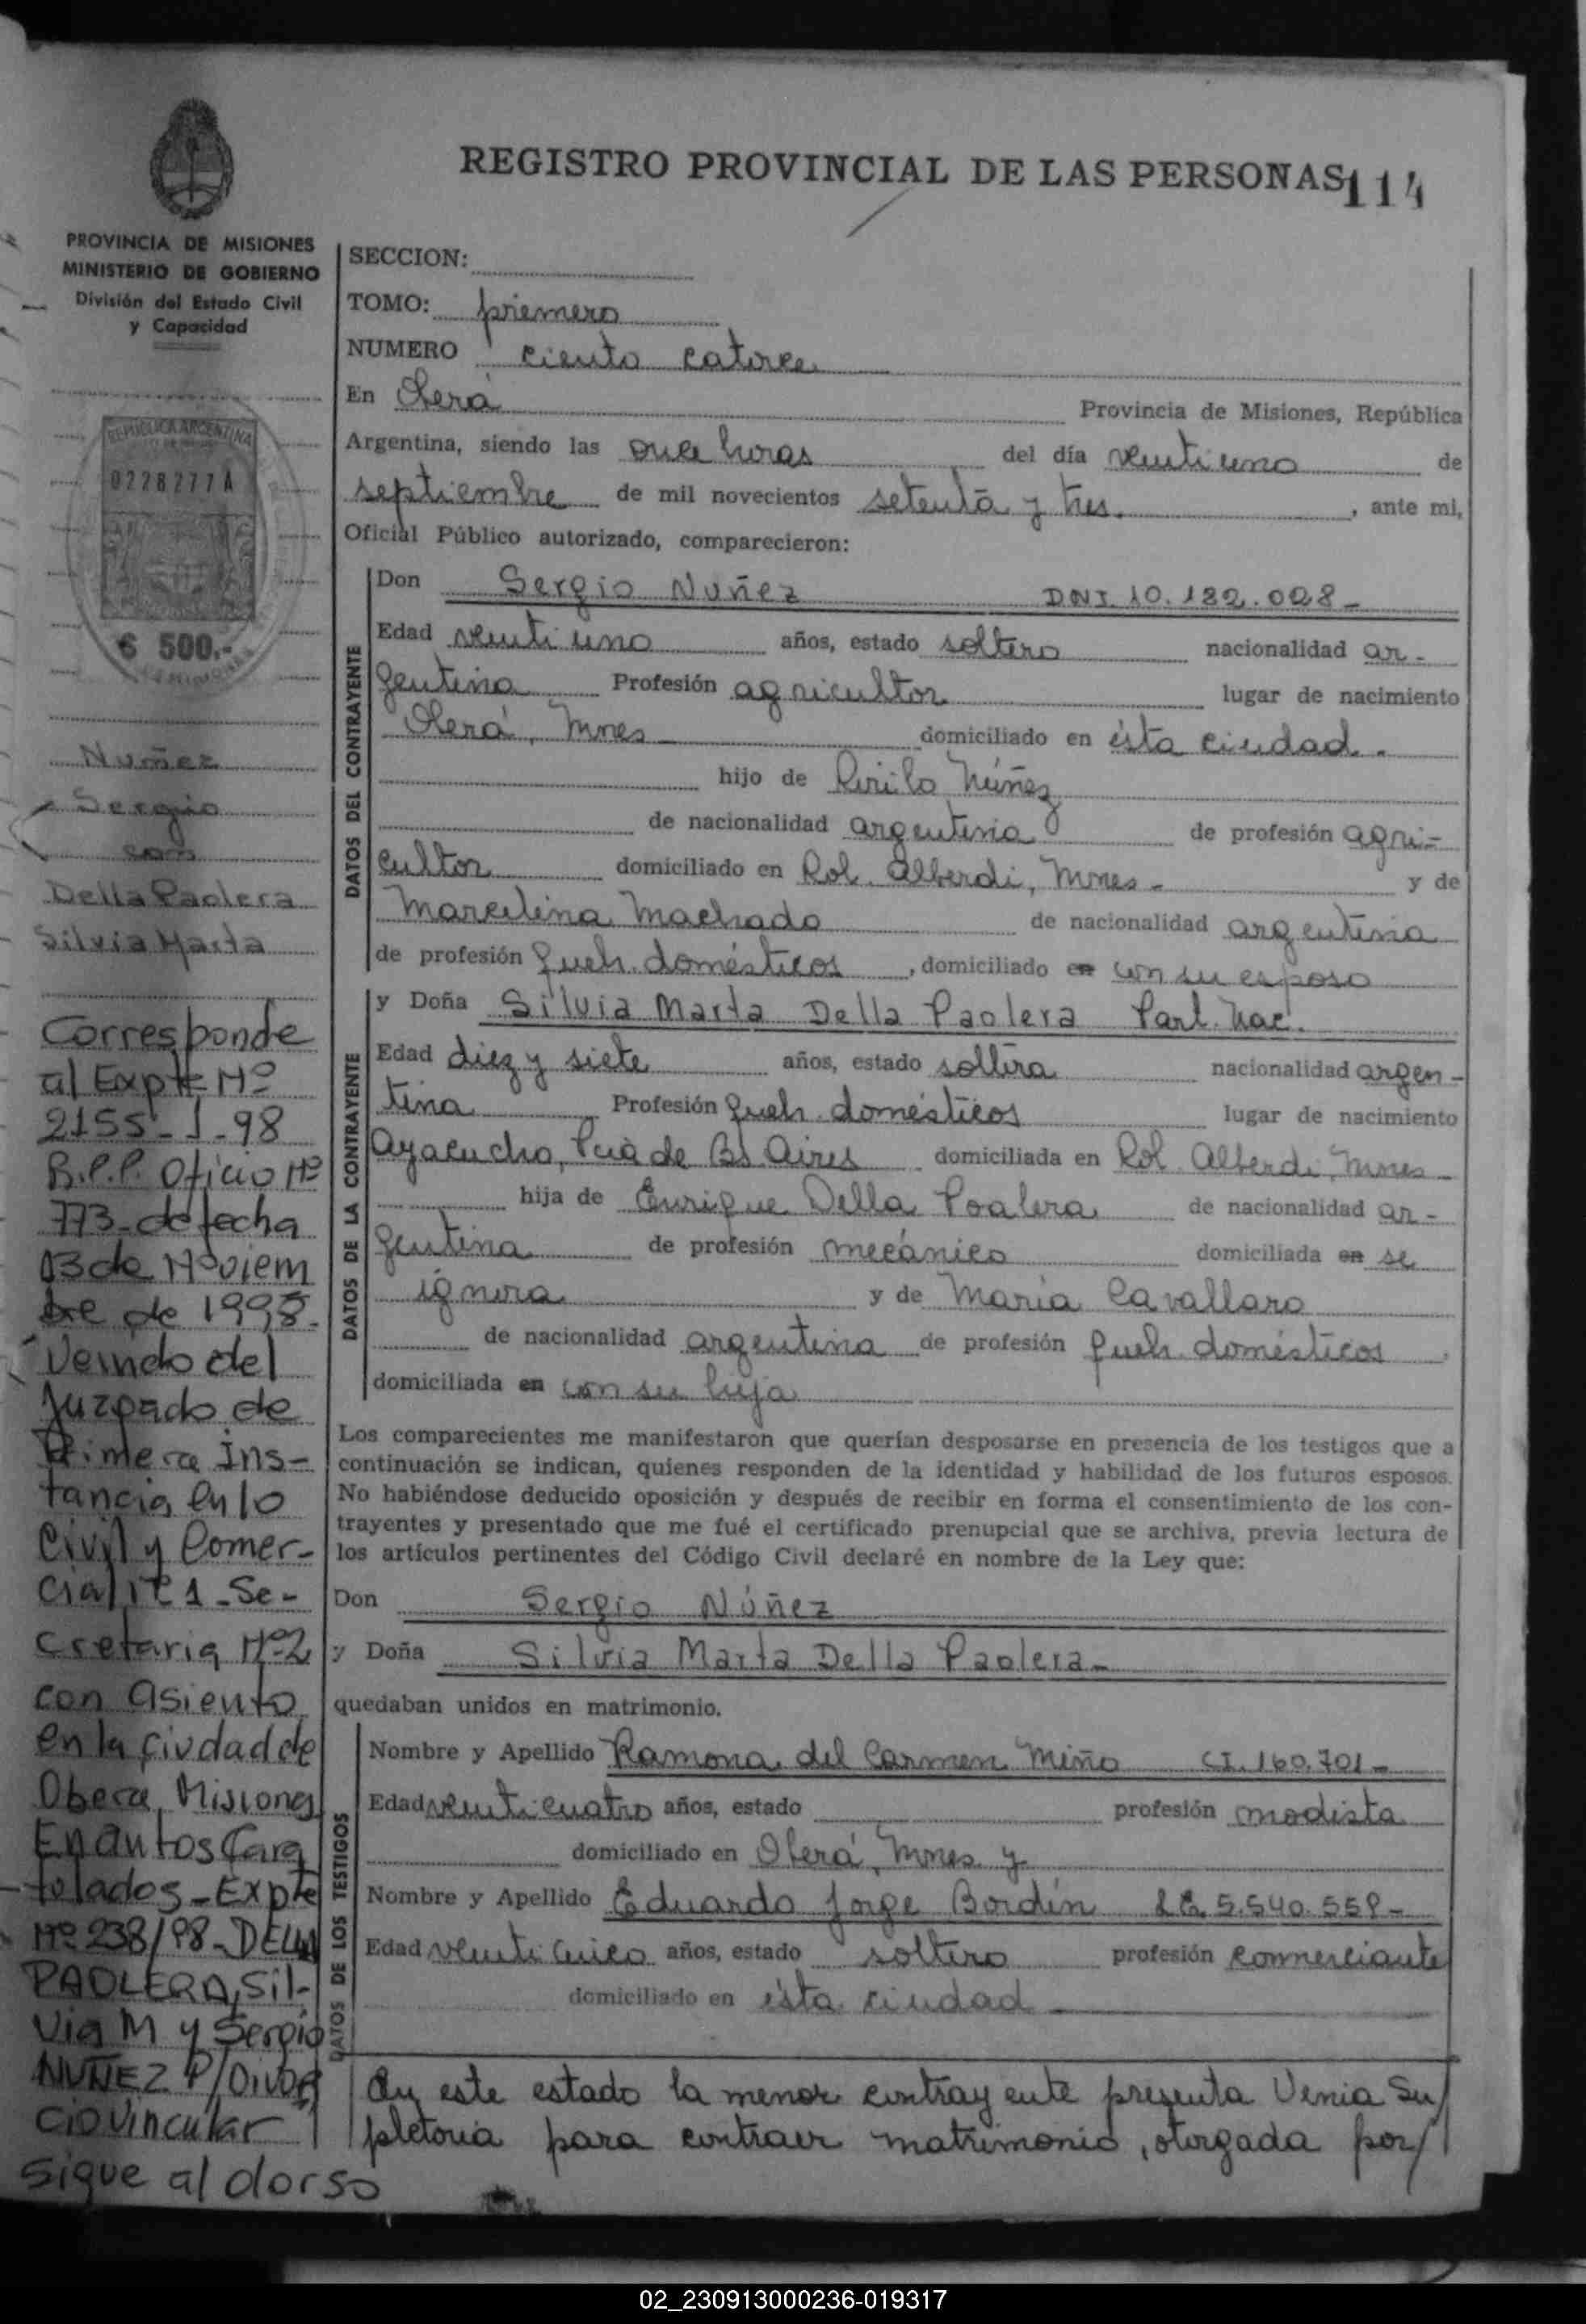 REGISTRO PROVINCIAL DE LAS PERSONAS 114
PROVINCIA DE MISIONES
MINISTERIO DE GOBIERNO
División del Estado Civil
y Capacidad
REPUBLICA ARGENTINA
0228277A
$ 500.-
Nuñez
Sergio
con
Della Paolera
Silvia Marta
Corresponde
al Expte Nº
2155-J-98
R.P.P. Oficio Nº
773-de fecha
03 de Noviem
bre de 1998.
Veindo del
Juzgado de
Primera Ins-
tancia en lo
Civil y Comer-
cial Nº 1-Se-
cretaria Nº2
con asiento
en la ciudad de
Obera, Misiones
En autos Cara
tulados-Expte
Nº 238/98-DELLA
PAOLERA, Sil-
via M y Sergio
NUÑEZ P/Divor
cio Vincular"
sigue al dorso
SECCION:
TOMO: priemero
NUMERO ciento catorce
En Oberá Provincia de Misiones, República
Argentina, siendo las once horas del día veinti uno de
septiembre de mil novecientos setenta y tres. , ante mi,
Oficial Público autorizado, comparecieron:
DATOS DEL CONTRAYENTE
Don Sergio Nuñez DNI. 10.182.028-
Edad veinti uno años, estado soltero nacionalidad ar-
gentina Profesión agricultor lugar de nacimiento
Oberá, Mnes domiciliado en ésta ciudad.
hijo de Cirilo Núñez
de nacionalidad argentina de profesión agri-
cultor domiciliado en Col. Alberdi, Mnes- y de
Marcelina Machado de nacionalidad argentina
de profesión queh. domésticos , domiciliado en con su esposo
DATOS DE LA CONTRAYENTE
y Doña Silvia Marta Della Paolera Part. Nac.
Edad diez y siete años, estado soltera nacionalidad argen-
tina Profesión queh. domésticos lugar de nacimiento
Ayacucho, Pcia de Bs. Aires domiciliada en Col. Alberdi, Mnes-
hija de Enrique Della Poalera de nacionalidad ar-
gentina de profesión mecánico domiciliada en se
ignora y de Maria Cavallaro
de nacionalidad argentina de profesión queh. domésticos
domiciliada en con su hija
Los comparecientes me manifestaron que querían desposarse en presencia de los testigos que a
continuación se indican, quienes responden de la identidad y habilidad de los futuros esposos.
No habiéndose deducido oposición y después de recibir en forma el consentimiento de los con-
trayentes y presentado que me fué el certificado prenupcial que se archiva, previa lectura de
los artículos pertinentes del Código Civil declaré en nombre de la Ley que:
Don Sergio Núñez
y Doña Silvia Marta Della Paolera-
quedaban unidos en matrimonio.
DATOS DE LOS TESTIGOS
Nombre y Apellido Ramona del Carmen Miño CI. 160.701-
Edad veinti cuatro años, estado profesión modista
domiciliado en Oberá, Mnes y
Nombre y Apellido Eduardo Jorge Bordín LE. 5.540.559-
Edad veinti cinco años, estado soltero profesión comerciante
domiciliado en ésta ciudad
En este estado la menor contrayente presenta Venia Su/
pletoria para contraer matrimonio, otorgada por/
02_230913000236-019317